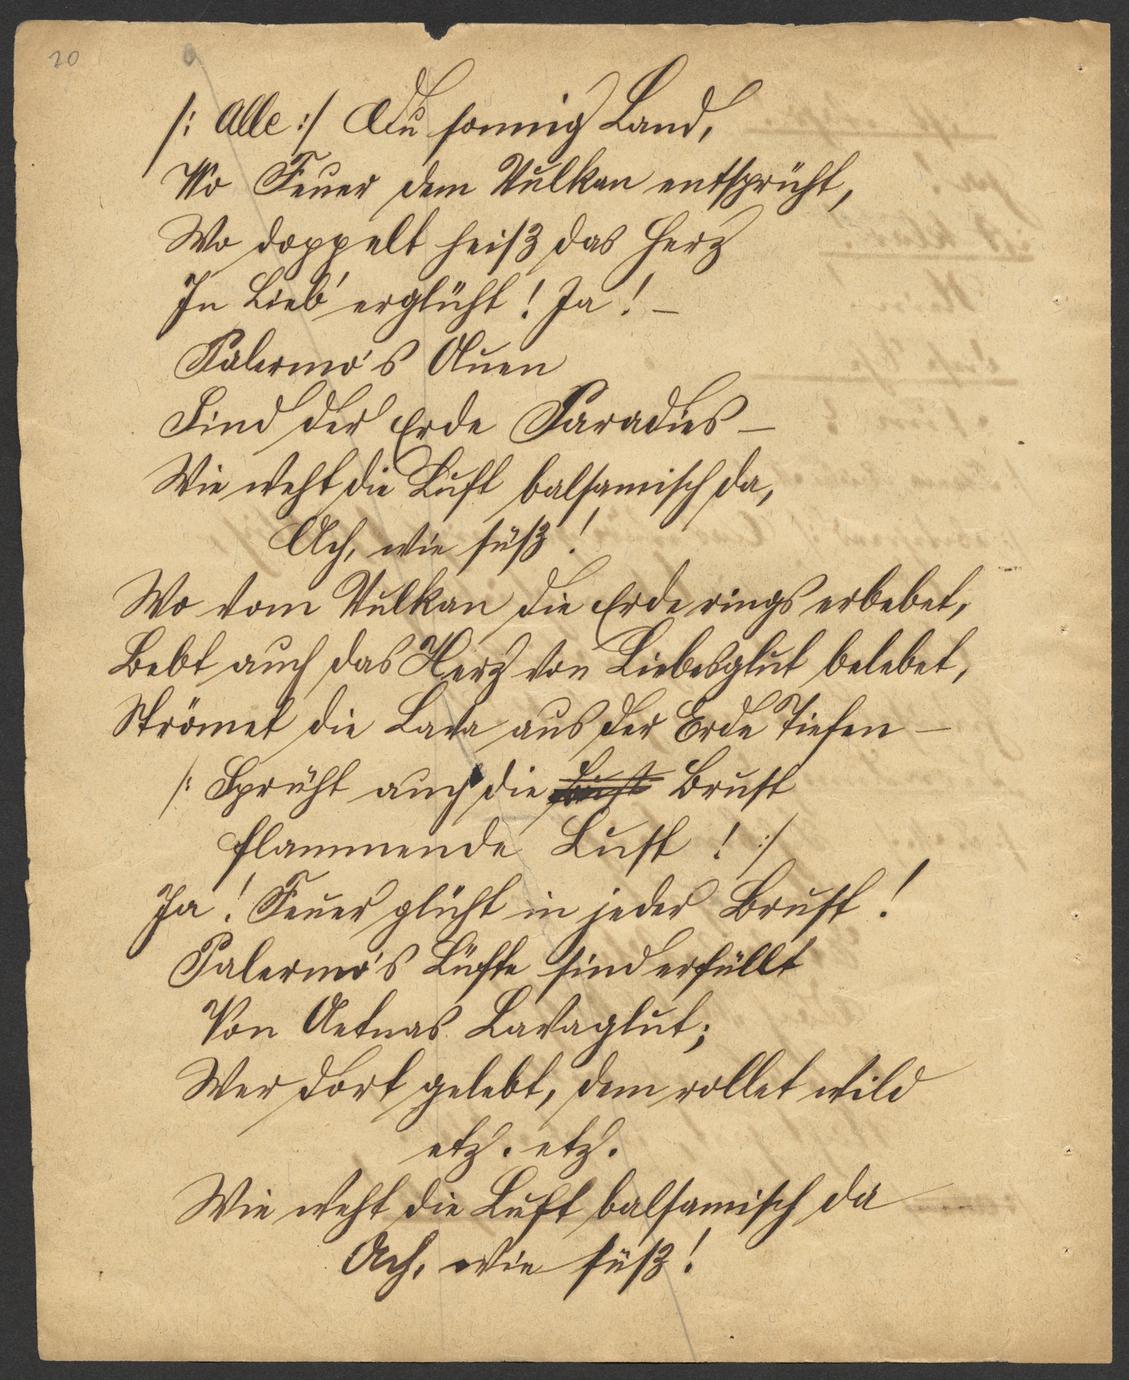 20
/: Alle :/ Du sonnig Land,
Wo Feuer dem Vulkan entsprüht,
Wo doppelt heiß das Herz
In Lieb' erglüht! Ja! –
Palermo's Auen
Sind der Erde Paradies –
Wie weht die Luft balsamisch da,
Ach, wie süß!
Wo vom Vulkan die Erde rings erbebet,
Bebt auch das Herz von Liebesglut belebet,
Strömet die Lava aus der Erde Tiefen –
/: Sprüht auch die Brust
flammende Lust! :/
Ja! Feuer glüht in jeder Brust!
Palermo's Lüfte sind erfüllt
Von Aetnas Lavaglut;
Wer dort gelebt, dem rollet wild
etz. etz.
Wie weht die Luft balsamisch da
Ach, wie süß!